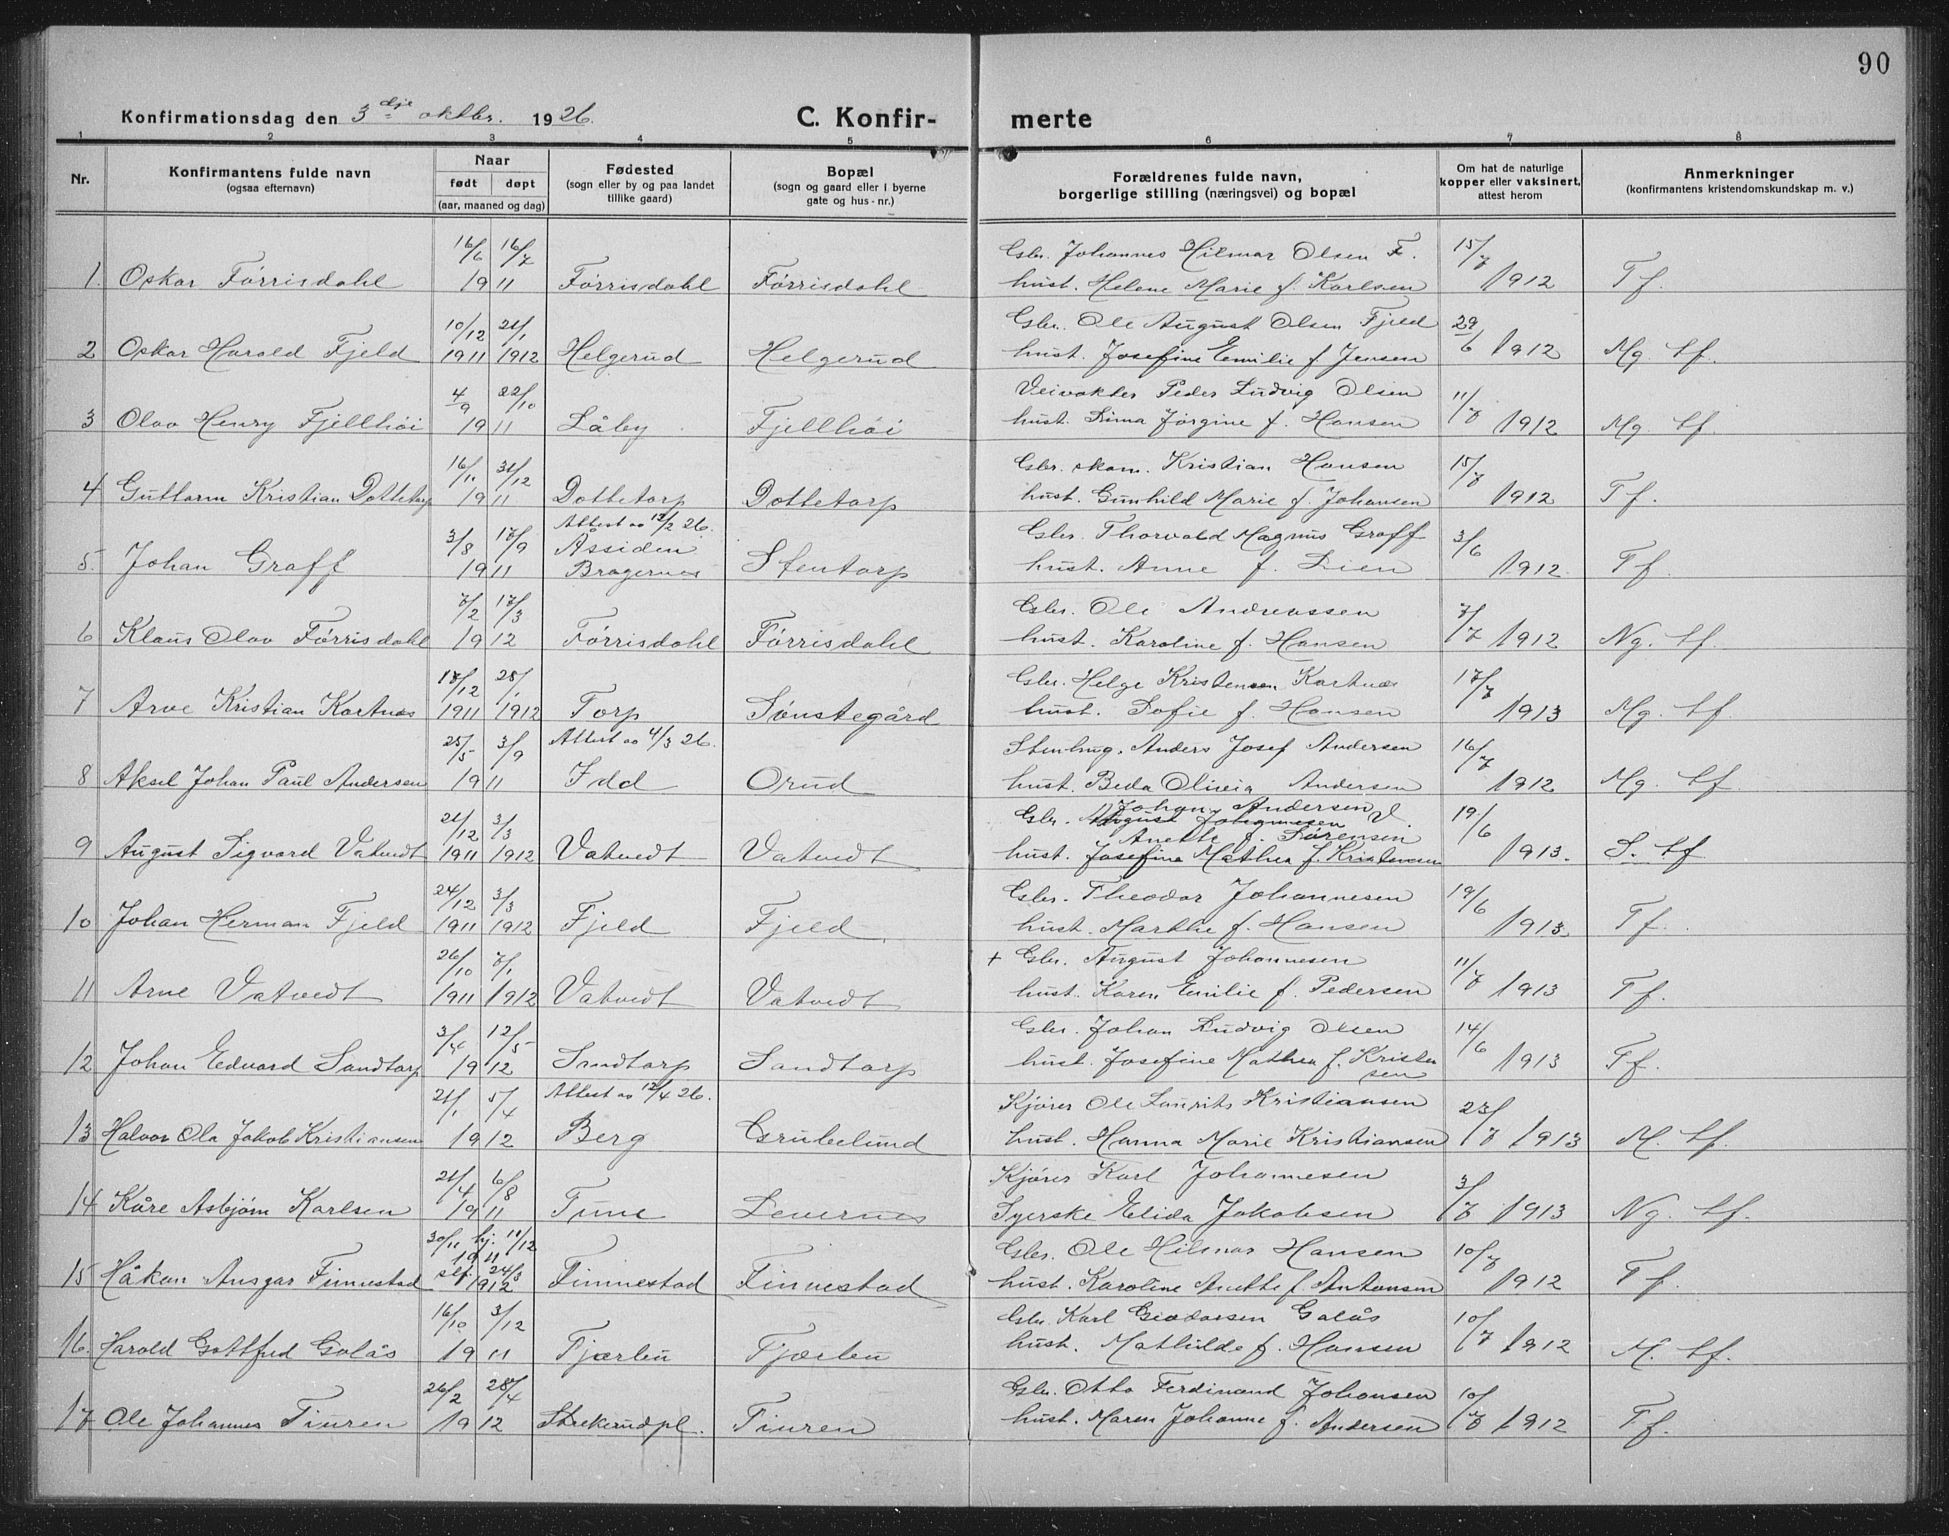 90
Konfirmationsdag den 3dje oktbr. 1926.
C. Konfirmerte
1 2 3 4 5 6 7 8
Nr. Konfirmantens fulde navn (ogsaa efternavn) Naar født døpt (aar, maaned og dag) Fødested (sogn eller by og paa landet tillike gaard) Bopæl (sogn og gaard eller i byerne gate og hus-nr.) Forældrenes fulde navn, borgerlige stilling (næringsvei) og bopæl Om hat de naturlige kopper eller vaksinert, attest herom Anmerkninger (konfirmantens kristendomskundskap m. v.)
16/6 16/7 Gbr. Johannes Hilmar Olsen F. 15/7
1. Oskar Førrisdahl 1911 Førrisdahl Førrisdahl hust. Helene Marie f. Karlsen 1912 Tf.
10/12 21/1 Gbr. Ole August Olsen Fjeld 29/6
2 Oskar Harald Fjeld 1911 1912 Helgerud Helgerud hust. Josefine Emilie f. Jensen 1912 Mg. tf.
4/9 22/10 Veivokter Peder Ludvig Olsen 11/7
3 Olav Henry Fjellhöi 1911 Låby Fjellhöi hust. Lina Jørgine f. Hansen 1912 Mg. tf.
16/11 31/12 Gbr. skom. Kristian Hansen 15/7
4 Guttorm Kristian Dottetorp 1911 Dottetorp Dottetorp hust. Gunhild Marie f. Johansen 1912 Tf.
Attest av 12/2 26.
3/8 17/9 Assiden Gbr. Thorvald Magnus Graff 3/6
5. Johan Graff 1911 Bragernes Stentorp hust. Anne f. Lien 1912. Tf.
7/2 17/3 Gbr. Ole Andreassen 7/7
6 Klaus Olav Førrisdahl 1912 Førrisdahl Førrisdahl hust. Karoline f. Hansen 1912 Ng. tf.
17/12 28/1 Gbr. Helge Kristensen Kortnæs 17/7
7 Arve Kristian Kortnæs 1911 1912 Torp Sønstegård hust. Sofie f. Hansen 1913 Mg. tf.
25/5 3/9 Attest av 4/3 26. Stenhug. Anders Josef Andersen 16/7
8 Aksel Johan Paul Andersen 1911 Idd Orud hust. Beda Olivia Andersen 1912 Mg. tf.
Johan Andersen V.
21/12 3/3 Gbr. August Johannesen 19/6
Anette f. Sørensen
9 August Sigvard Vatvedt 1911 1912 Vatvedt Vatvedt hust. Josefine Mathea f. Kristensen 1913. S. tf
24/12 3/3 Gbr. Theodor Johannesen 19/6
10 Johan Herman Fjeld 1911 1912 Fjeld Fjeld hust. Marthe f. Hansen 1913. Tf.
26/10 7/1 + Gbr. August Johannesen 11/7
11 Arne Vatvedt 1911 1912 Vatvedt Vatvedt hust. Karen Emilie f. Pedersen 1913 Tf.
3/4 12/5 Gbr. Johan Ludvig Olsen 14/6
12 Johan Edvard Sandtorp 1912 Sandtorp Sandtorp hust. Josefine Mathea f. Kristensen 1913 Tf.
21/1 5/4 Attest av 12/4 26. Kjører Ole Laurits Kristiansen 23/7
13 Halvor Ola Jakob Kristiansen 1912 Berg Grubelund hust. Hanna Marie Kristiansen 1913 M. tf.
21/4 6/8 Kjører Karl Johannesen 3/7
14 Kåre Asbjørn Karlsen 1911 Tune Levernes Syerske Elida Jakobsen 1913 Ng. tf.
30/11 hj. 11/12 1911 Gbr. Ole Hilmar Hansen 10/7
15 Håkon Ansgar Finnestad stf. 24/3 1912 Finnestad Finnestad hust. Karoline Anette f. Antonsen 1912 Tf.
16/10 3/12 Gbr. Karl Geodorsen Golås 10/7
16. Harald Gottfred Golås 1911 Fjærlen Fjærlen hust. Mathilde f. Hansen 1912 M. tf.
26/2 28/4 Gbr. Otto Ferdinand Johansen 10/7
17 Ole Johannes Tiuren 1912 Strekerudpl. Tiuren hust. Maren Johanne f. Andersen 1912 Tf.